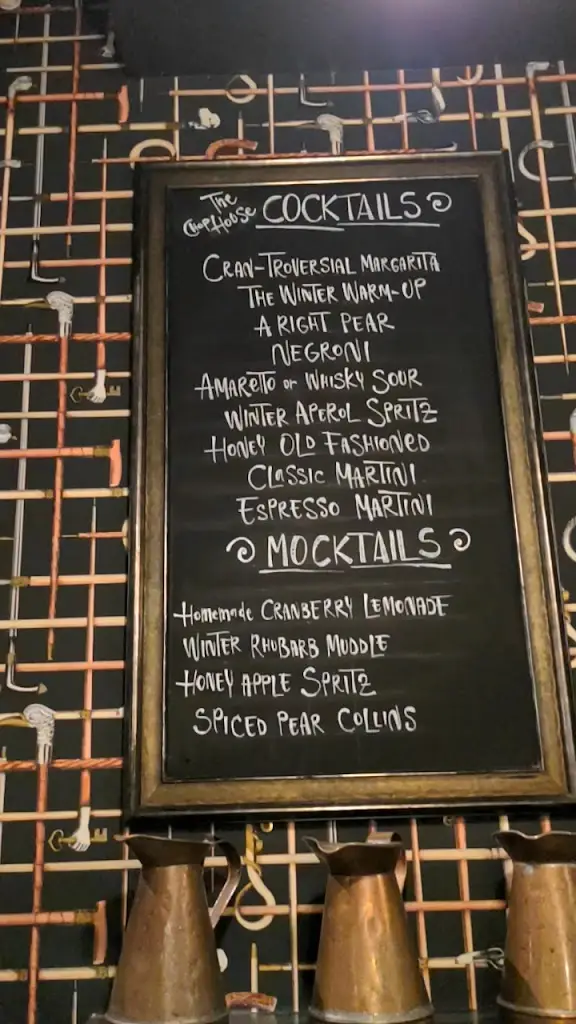 The ChopHouse COCKTAILS
CRAN-TROVERSIAL MARGARITA
THE WINTER WARM-UP
A RIGHT PEAR
NEGRONI
AMARETTO or WHISKY SOUR
WINTER APEROL SPRITZ
HONEY OLD FASHIONED
CLASSIC MARTINI
ESPRESSO MARTINI
MOCKTAILS
Homemade CRANBERRY LEMONADE
WINTER RHUBARB MUDDLE
HONEY APPLE SPRITZ
SPICED PEAR COLLINS